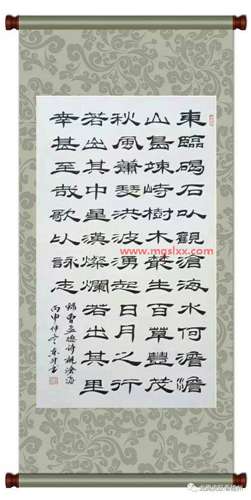 東臨碣石以觀滄海水何澹澹
山島竦峙樹木叢生百草豐茂
秋風蕭瑟洪波湧起日月之行
若出其中星漢燦爛若出其里
幸甚至哉歌以詠志
錄曹孟德詩觀滄海
丙申仲書
www.mgslxx.com